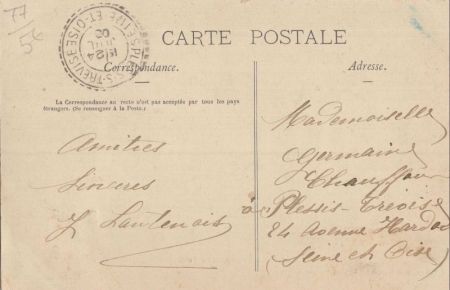 77
56
CARTE POSTALE
PLESSIS-TREVISE
SEINE-ET-OISE
24
Correspondance.
Adresse.
La Correspondance au recto n'est pas acceptée par tous les pays
étrangers. (Se renseigner à la Poste.)
Amitiés
Sincères
Mademoiselle
Germaine
à Plessis-Trévise
24 Avenue
Seine et Oise